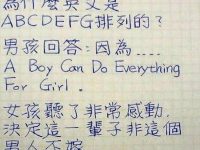 為什麼英文是
ABCDEFG排列的?
男孩回答:因為....
A Boy Can Do Everything
For Girl.
女孩聽了非常感動,
決定這一輩子非這個
男人不嫁